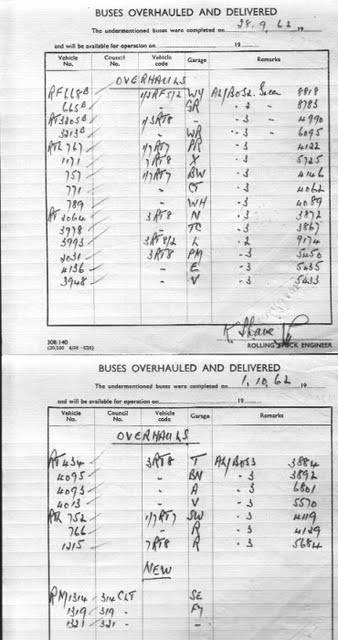 BUSES OVERHAULED AND DELIVERED
The undermentioned buses were completed on 28.9.62 19
and will be available for operation on 19
Vehicle No. Council No. Vehicle code Garage Remarks
OVERHAULS
RF668B 1/2RF5/2 WY AL/BOS2. 8818
665B " GR " 2 " 8783
RT3205B 1/3RT8 " " 3 " 4990
3213B " WR " 3 " 6095
RTL 767 1/7RT7 PR " 3 4122
1171 7RT8 X " 3 5725
757 1/7RT7 BW " 3 4146
771 " CT " 3 4062
789 " WH " 3 4089
RT 2064 3RT8 N " 3 3872
3978 " TC " 3 3867
3993 3RT8/2 L " 2 9174
2031 3RT8 PM " 3 5450
4136 " E " 3 5435
3948 " V " 3 5433
308/140
ROLLING STOCK ENGINEER
BUSES OVERHAULED AND DELIVERED
The undermentioned buses were completed on 1.10.62 19
and will be available for operation on 19
Vehicle No. Council No. Vehicle code Garage Remarks
OVERHAULS
RT 434 3RT8 T AL/BOS3 3884
4095 " BN " 3 3892
4093 " A " 3 6801
4013 " V " 3 5570
RTL 752 1/7RT7 SW " 3 4119
766 " R " 3 4129
1215 7RT8 R " 3 5684
NEW
RM1314 314 CLT SE
1319 319 " FY
1321 321 " "